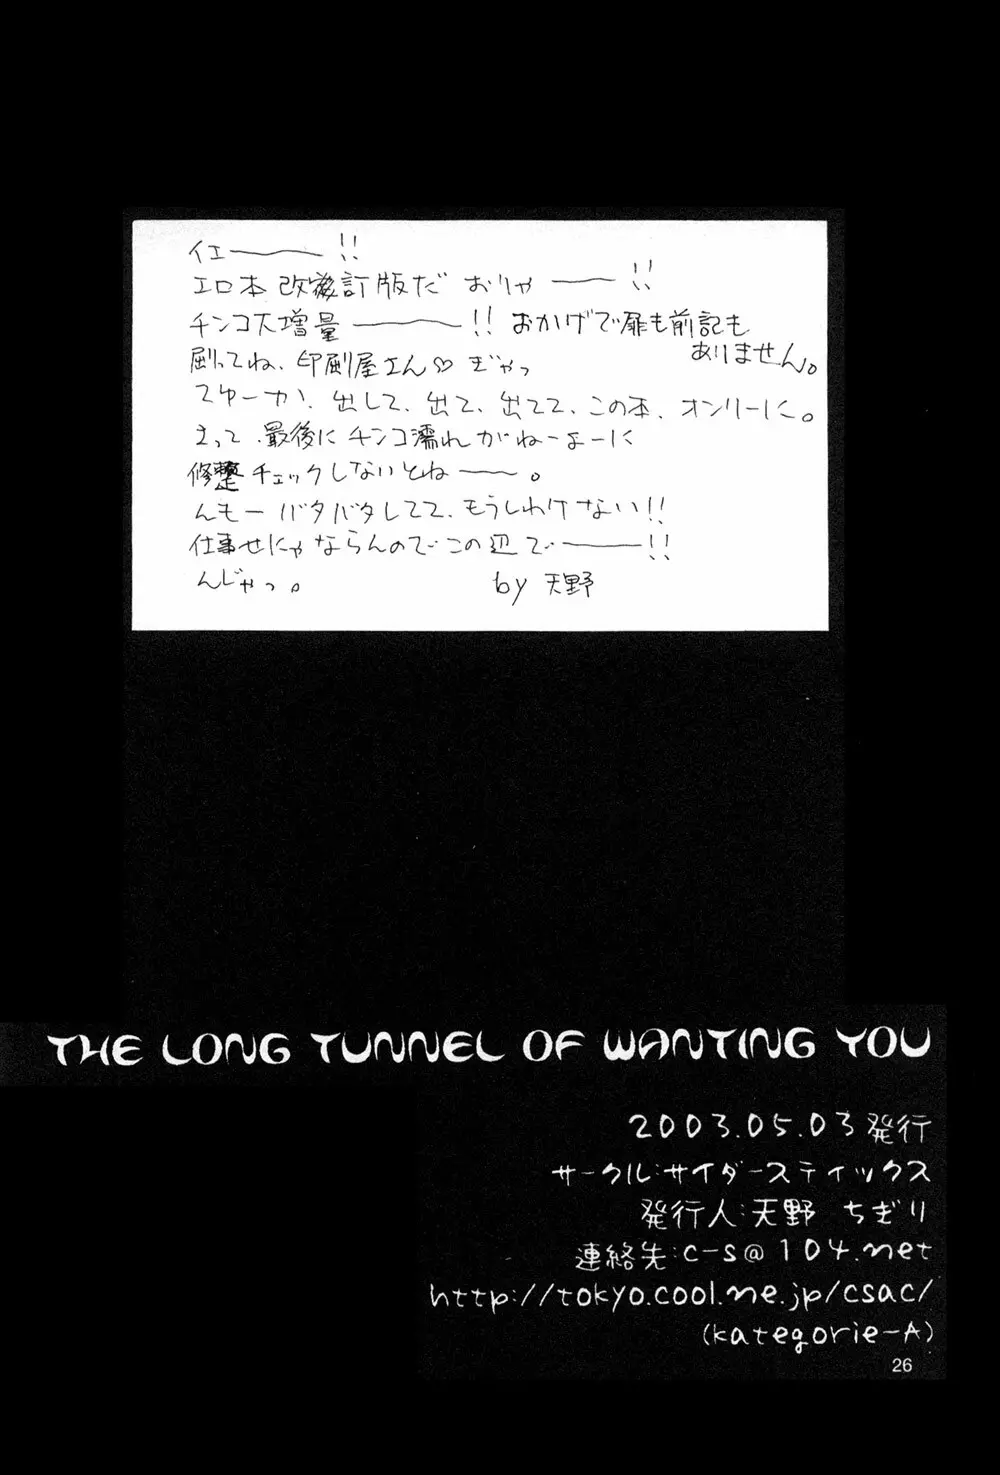 イエーーー!!
エロ本改訂版だ おりゃーー!!
チンコ大増量ーーー!! おかげで扉も前記も
ありません。
刷ってね、印刷屋さん♡ ぎゃっ
てゆーか、出して、出て、出てて、この本、オンリーに。
さって、最後にチンコ濡れがねーよーに
修整チェックしないとねーー。
んもーバタバタしてて、もうしわけない!!
仕事せにゃならんのでこの辺でーーー!!
んじゃっ。 by 天野
THE LONG TUNNEL OF WANTING YOU
2003.05.03発行
サークル:サイダースティックス
発行人:天野 ちぎり
連絡先:c-s@104.net
http://tokyo.cool.ne.jp/csac/
(kategorie-A)
26